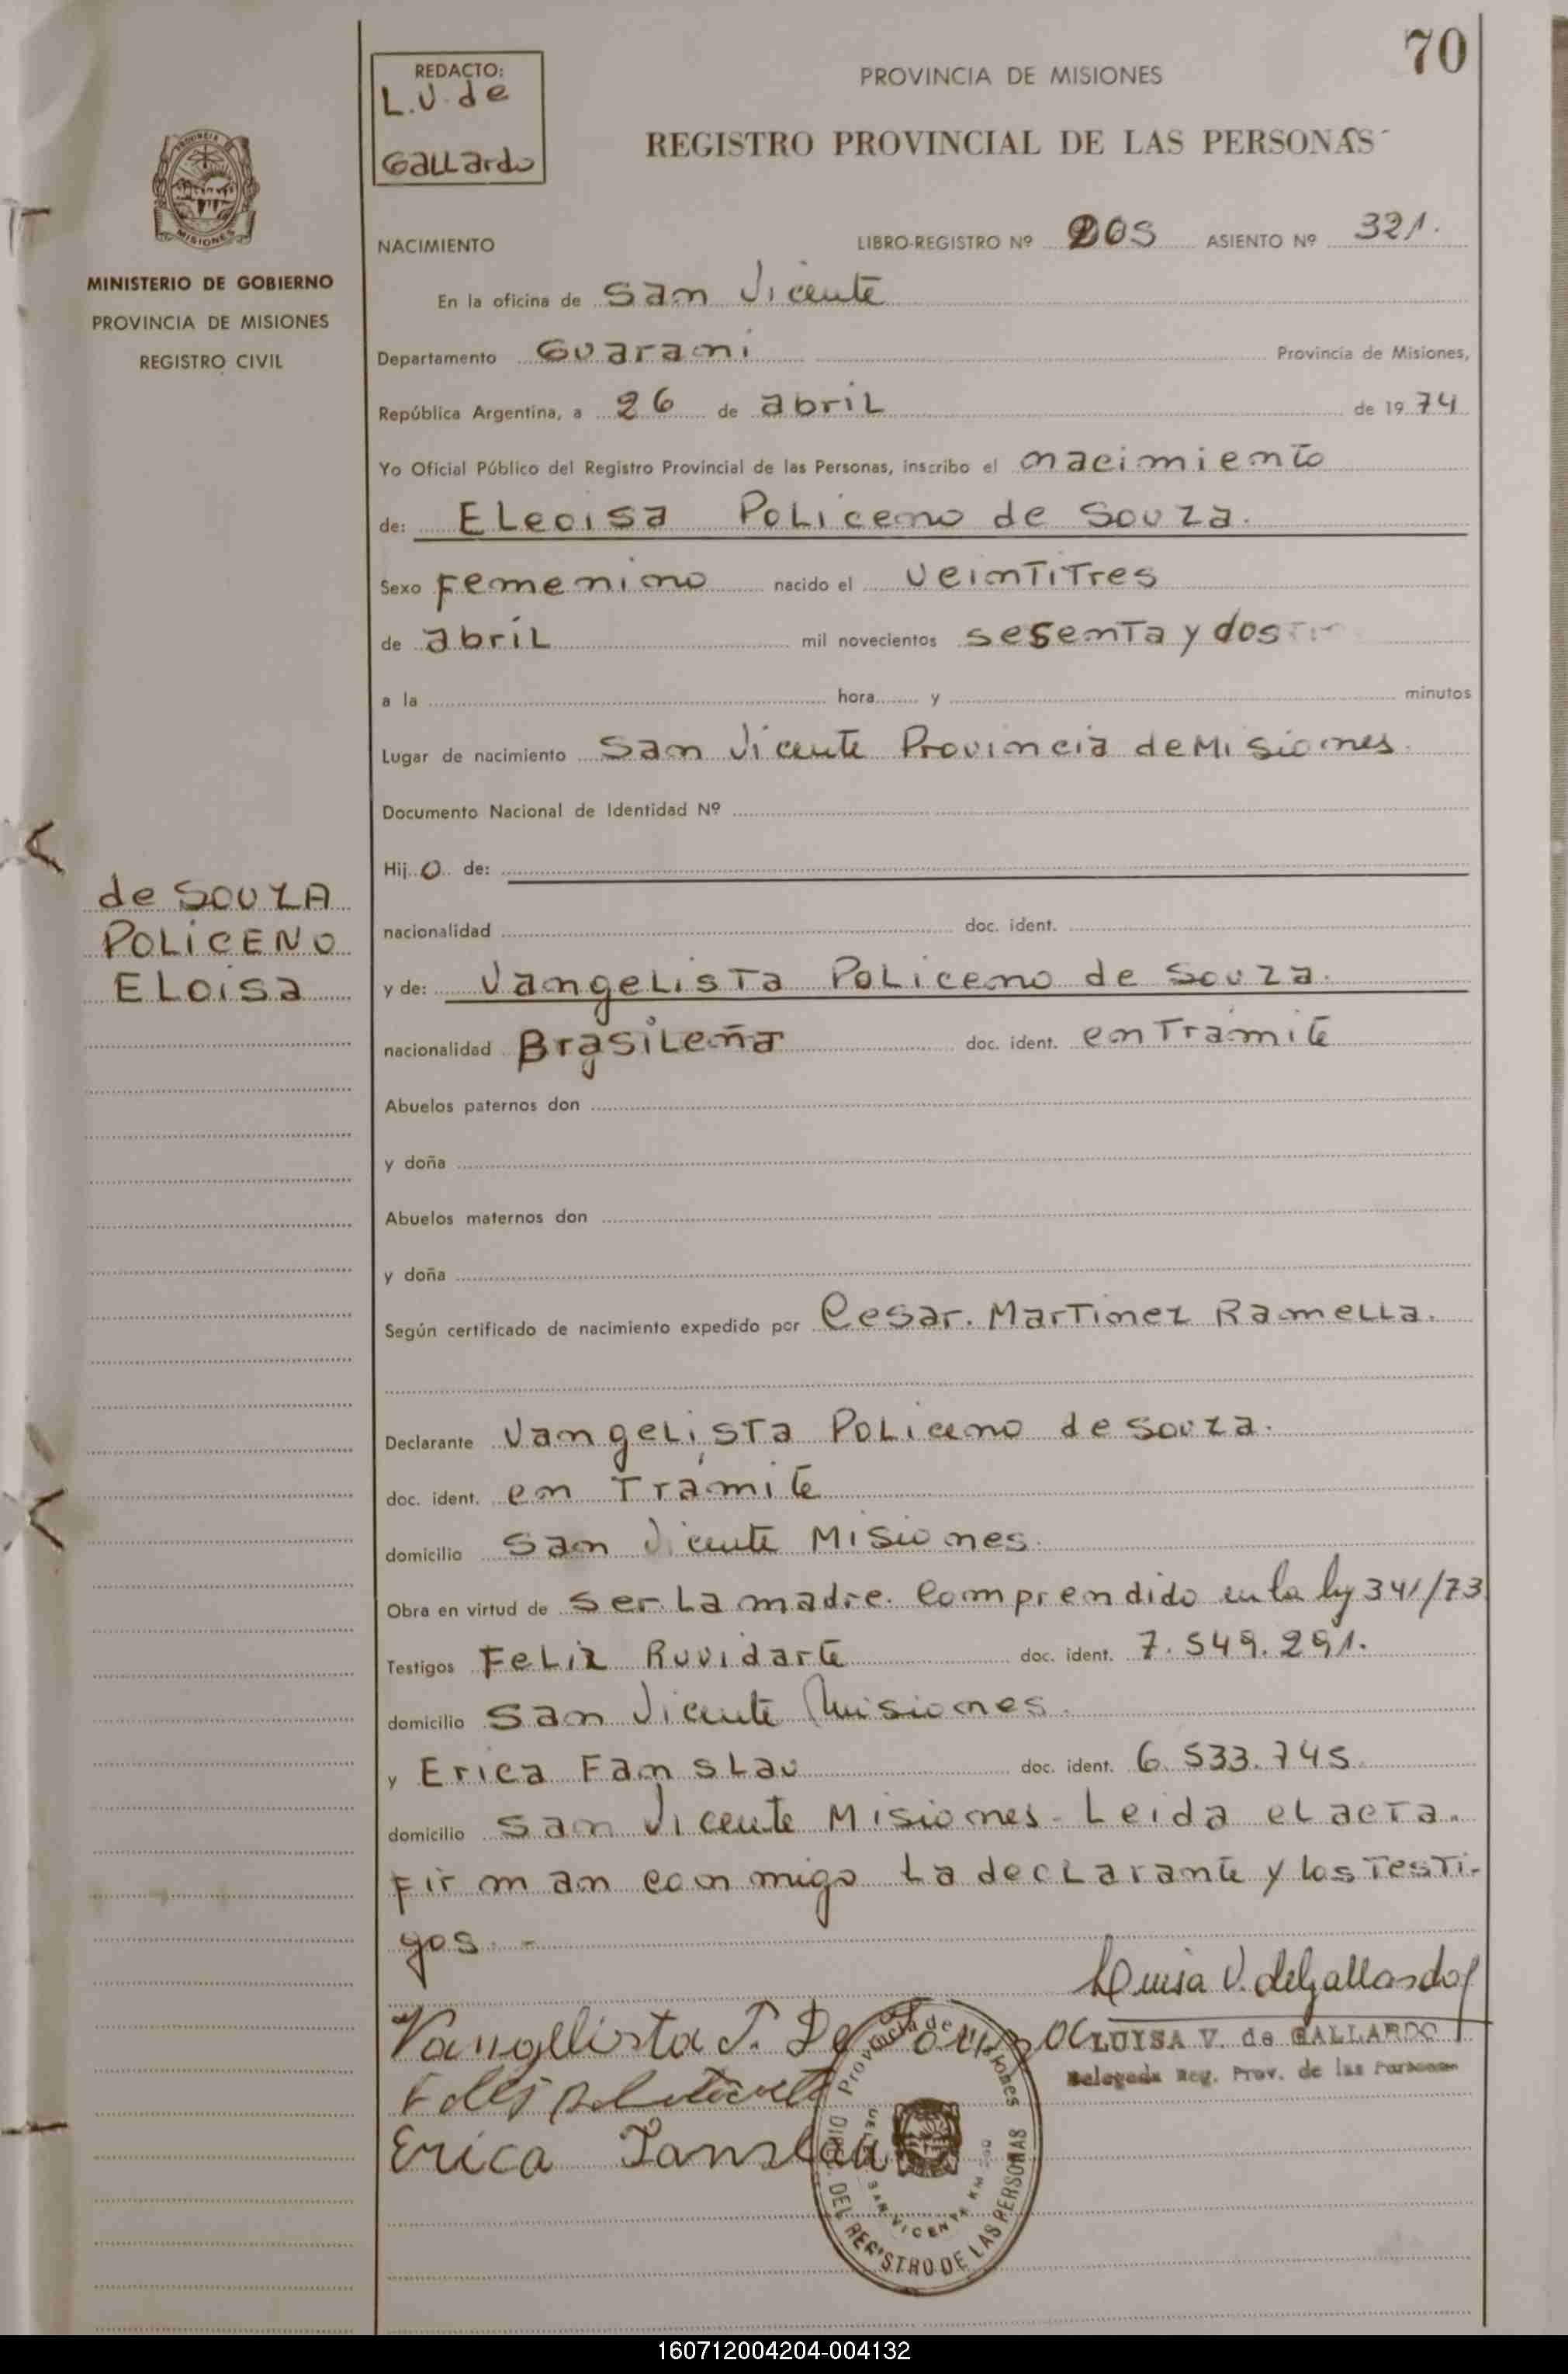 70
REDACTO:
L.V. de
Gallardo
PROVINCIA DE MISIONES
REGISTRO PROVINCIAL DE LAS PERSONAS
PROVINCIA
MISIONES
MINISTERIO DE GOBIERNO
PROVINCIA DE MISIONES
REGISTRO CIVIL
NACIMIENTO LIBRO-REGISTRO Nº DOS ASIENTO Nº 321.
En la oficina de San Vicente
Departamento Guarani Provincia de Misiones,
República Argentina, a 26 de abril de 1974
Yo Oficial Público del Registro Provincial de las Personas, inscribo el nacimiento
de: Eleoisa Policeno de Souza.
Sexo Femenino nacido el veintitres
de abril mil novecientos sesenta y dos
a la hora y minutos
Lugar de nacimiento San Vicente Provincia de Misiones.
Documento Nacional de Identidad Nº
Hij o de:
de SOUZA
POLICENO
ELoisa
nacionalidad doc. ident.
y de: Vangelista Policeno de Souza.
nacionalidad Brasileña doc. ident. en Tramite
Abuelos paternos don
y doña
Abuelos maternos don
y doña
Según certificado de nacimiento expedido por Cesar. Martinez Ramella.
Declarante Vangelista Policeno de Souza.
doc. ident. en Tramite
domicilio San Vicente Misiones.
Obra en virtud de ser la madre. Comprendido en la ley 341/73
Testigos Feliz Ruvidarte doc. ident. 7.549.291.
domicilio San Vicente Misiones.
y Erica Fanslau doc. ident. 6.533.745.
domicilio San Vicente Misiones - Leida el acta.
firman conmigo la declarante y los testi-
gos. -
Luisa V. de Gallardo
Vangelista P. De Souza
LUISA V. de GALLARDO
Delegada Reg. Prov. de las Personas
Erica Fanslau
Provincia de Misiones
SAN VICENTE KM
DEL REGISTRO DE LAS PERSONAS
160712004204-004132